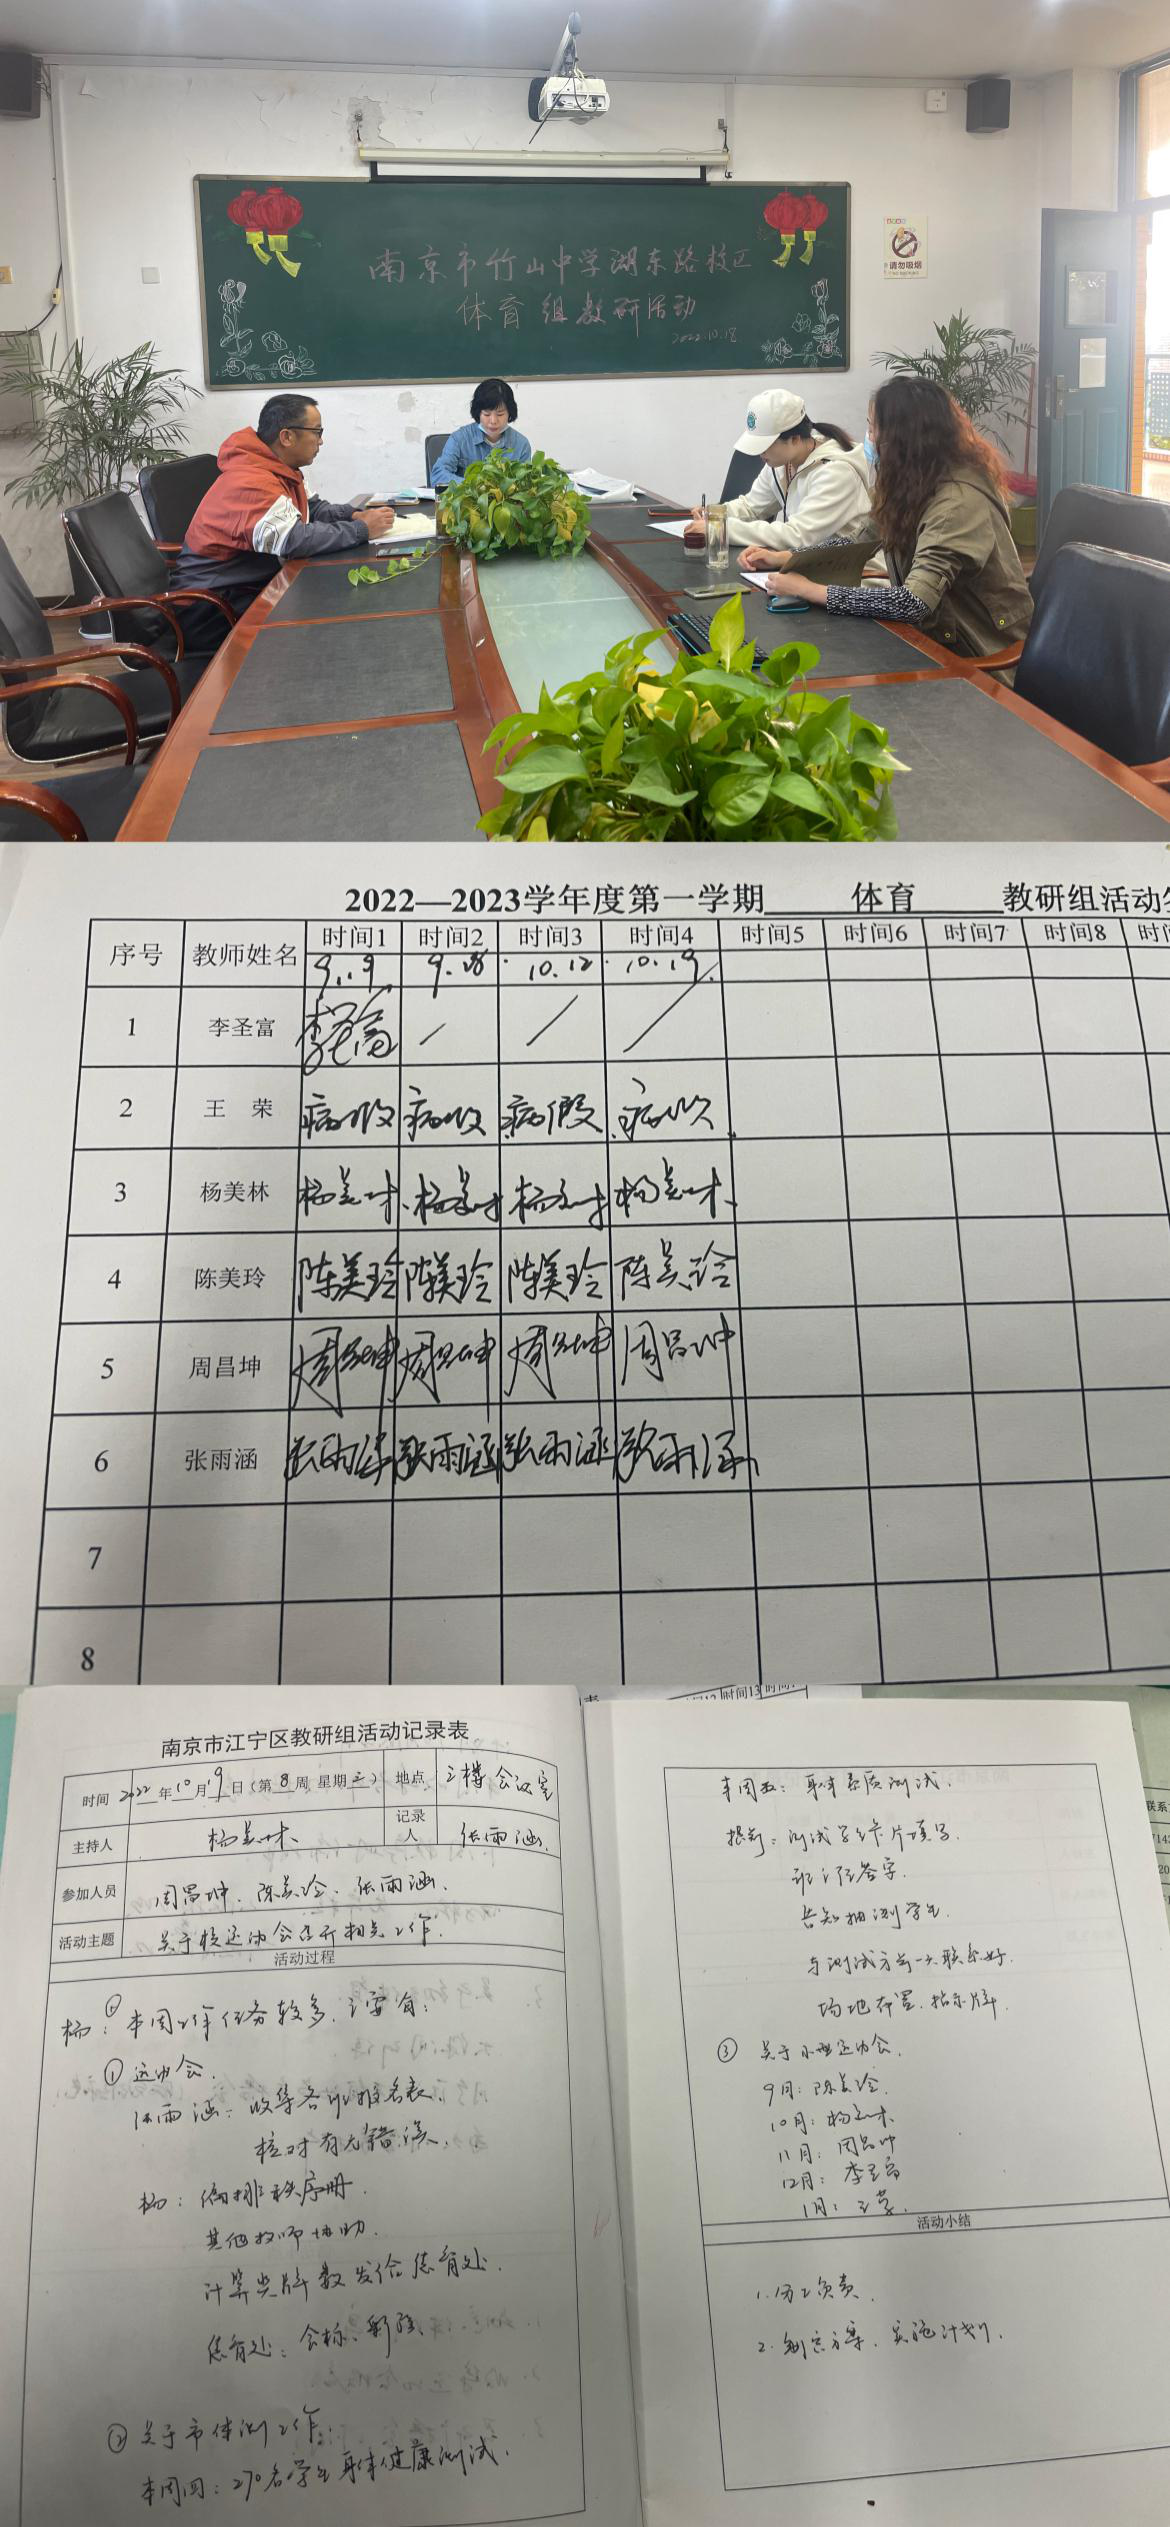 南京市竹山中学湖东路校区
体育组教研活动
2022.10.18
请勿吸烟
2022—2023学年度第一学期 体育 教研组活动签
序号 教师姓名 时间1 时间2 时间3 时间4 时间5 时间6 时间7 时间8 时间
9.9 10.12 10.19
1 李圣富 李圣富
2 王 荣 病假 病假 病假 病假
3 杨美林 杨美林 杨美林 杨美林 杨美林
4 陈美玲 陈美玲 陈美玲 陈美玲 陈美玲
5 周昌坤 周昌坤 周昌坤 周昌坤 周昌坤
6 张雨涵 张雨涵 张雨涵 张雨涵 张雨涵
7
8
南京市江宁区教研组活动记录表
时间 2022年10月19日(第8周 星期三) 地点 三楼会议室
主持人 杨美林 记录人 张雨涵
参加人员 周昌坤、陈美玲、张雨涵
活动主题 关于校运动会召开相关工作
活动过程
杨:本周工作任务较多,主要有:
① 运动会
张雨涵:收集各班报名表
核对有无错误
杨:编排秩序册
其他教师协助
计算奖牌数发给德育处
德育处:会标、
② 关于市体测工作
本周四:270名学生身体健康测试
本周五:身体素质测试
提前:测试学生卡片填写
班主任签字
告知抽测学生
与测试方前一天联系好
场地布置、指示牌
③ 关于小型运动会
9月:陈美玲
10月:杨美林
11月:周昌坤
12月:李圣富
1月:王荣
活动小结
1.分工负责
2.制定方案、实施计划
时间12 时间13 时间
联系